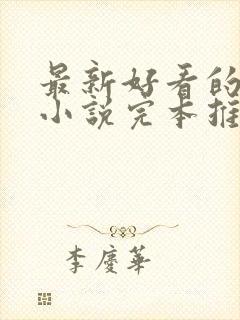 最新好看的
小說完本推
李慶華